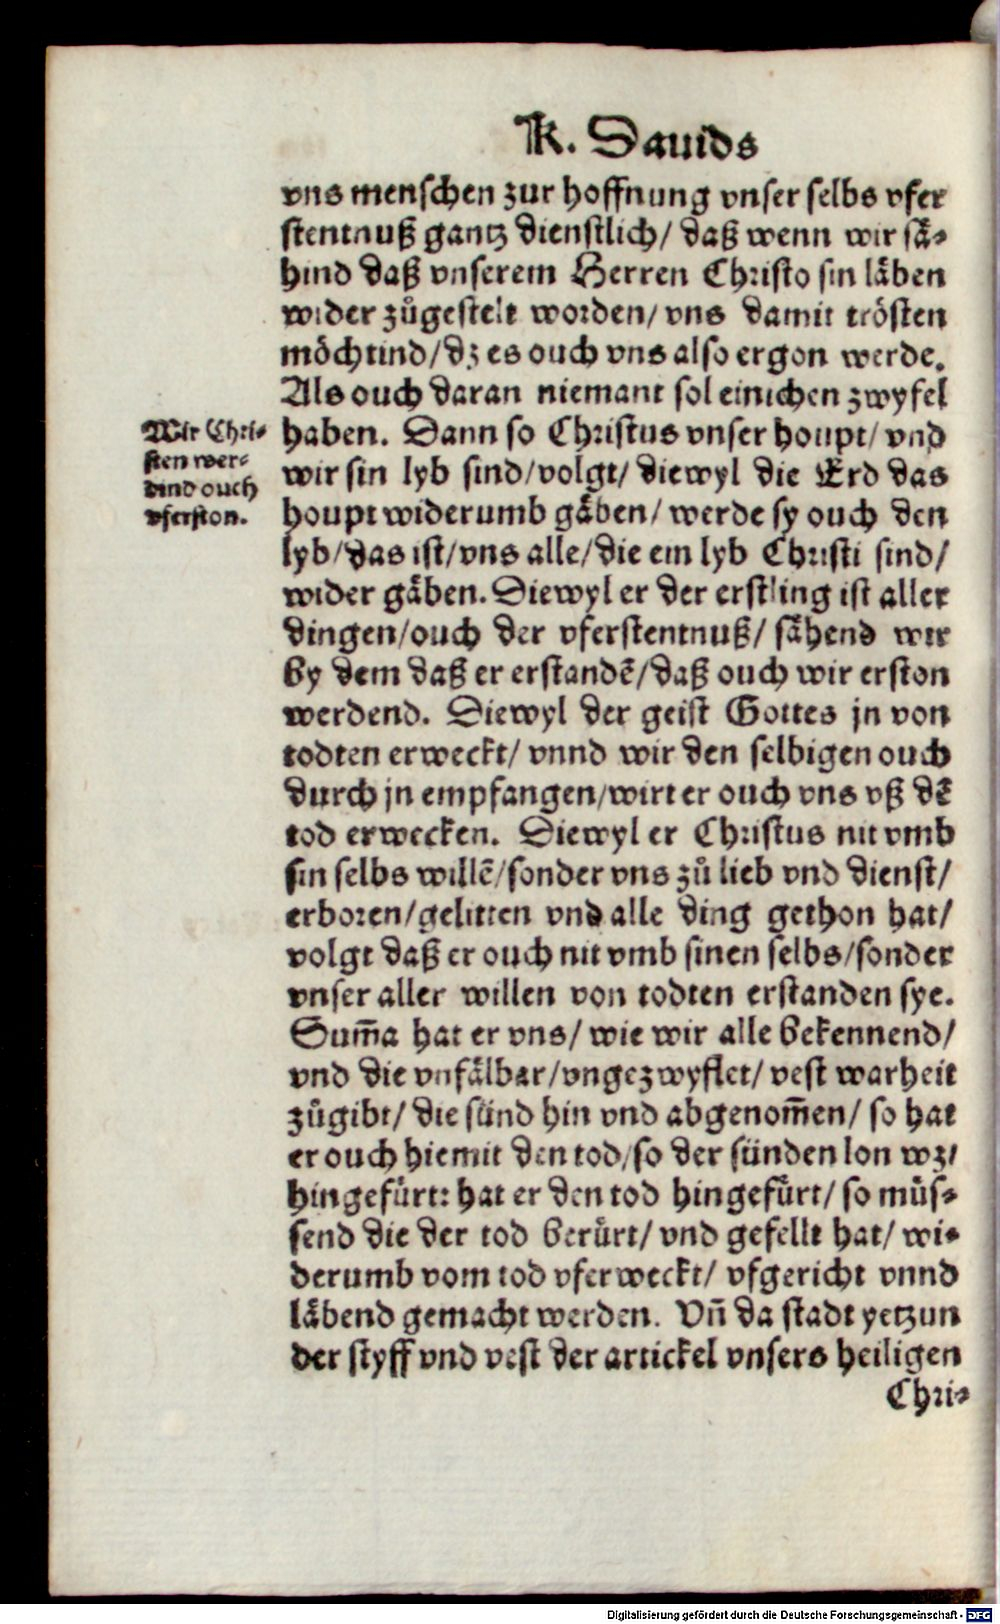 K. Dauids
vns menschen zur hoffnung vnser selbs vfer
stentnuß gantz dienstlich/ daß wenn wir sä-
hind daß vnserem Herren Christo sin läben
wider zůgestelt worden/ vns damit trösten
möchtind/ dz es ouch vns also ergon werde.
Als ouch daran niemant sol einichen zwyfel
haben. Dann so Christus vnser houpt/ vnd
wir sin lyb sind/ volgt/ diewyl die Erd das
houpt widerumb gäben/ werde sy ouch den
lyb/ das ist/ vns alle/ die ein lyb Christi sind/
wider gäben. Diewyl er der erstling ist aller
dingen/ ouch der vferstentnuß/ sähend wir
by dem daß er erstandē/ daß ouch wir erston
werdend. Diewyl der geist Gottes jn von
todten erweckt/ vnnd wir den selbigen ouch
durch jn empfangen/ wirt er ouch vns vß dē
tod erwecken. Diewyl er Christus nit vmb
sin selbs willē/ sonder vns zů lieb vnd dienst/
erboren/ gelitten vnd alle ding gethon hat/
volgt daß er ouch nit vmb sinen selbs/ sonder
vnser aller willen von todten erstanden sye.
Sum̄a hat er vns/ wie wir alle bekennend/
vnd die vnfälbar/ vngezwyflet/ vest warheit
zůgibt/ die sünd hin vnd abgenom̄en/ so hat
er ouch hiemit den tod/ so der sünden lon wz/
hingefürt: hat er den tod hingefürt/ so müs-
send die der tod berürt/ vnd gefellt hat/ wi-
derumb vom tod vferweckt/ vfgericht vnnd
läbend gemacht werden. Vn̄ da stadt yetzun
der styff vnd vest der artickel vnsers heiligen
Chri-
Wir Chri-
sten wer-
dind ouch
vferston.
Digitalisierung gefördert durch die Deutsche Forschungsgemeinschaft - DFG